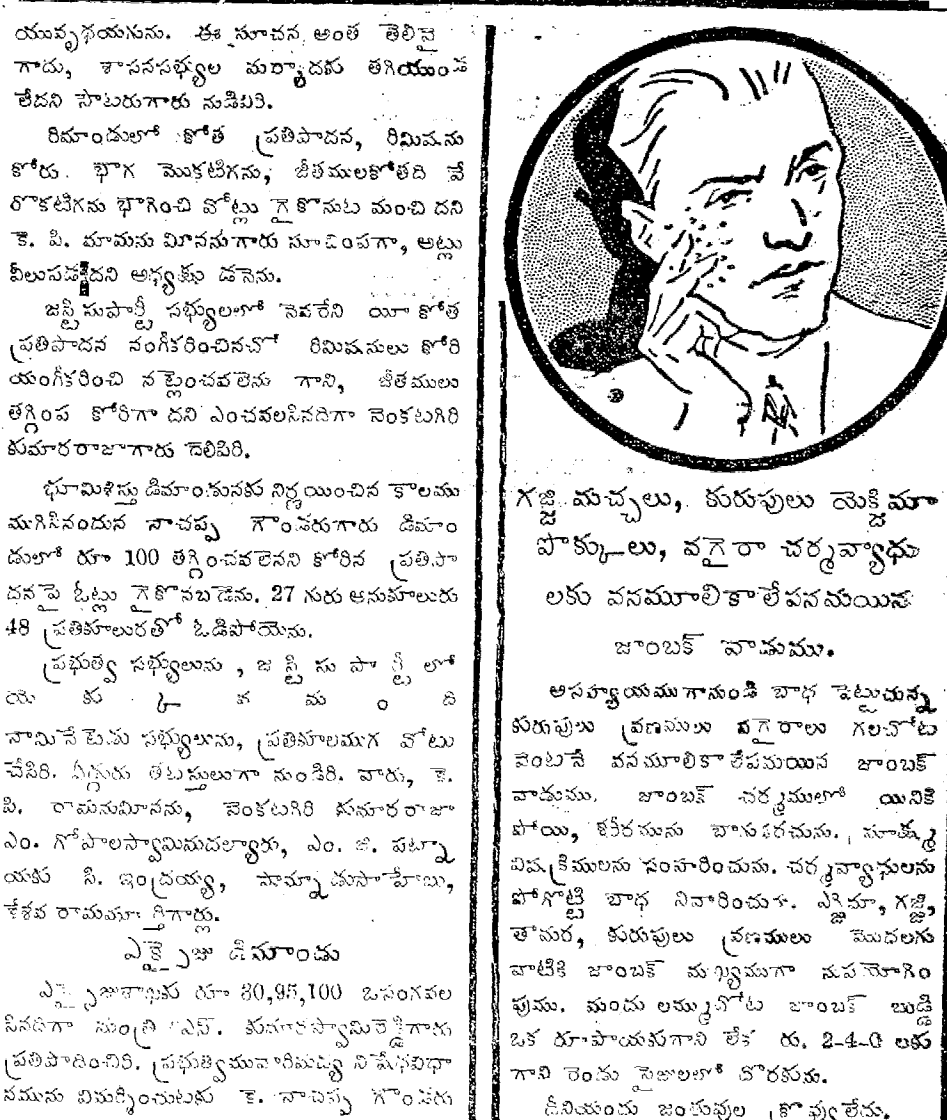 యువృథయనును. ఈ సూచన అంత తెలివై
గాదు, శాసనసభ్యుల మర్యాదకు తగియుండ
లేదని సాటరుగారు నుడివిరి.
రిమాండులో కోత ప్రతిపాదన, రిమిషను
కోరు భాగ మొకటిగను, జీతములకోతది వే
రొకటిగను భాగించి వోట్లు గైకొనుట మంచి దని
కె. పి. రామను మీననుగారు సూచింపగా, అట్లు
వీలుపడదని అధ్యక్షు డనెను.
జస్టిసుపార్టీ సభ్యులలో నెవరేని యీ కోత
ప్రతిపాదన నంగీకరించినచో రిమిషనులు కోరి
యంగీకరించి నట్లెంచవలెను గాని, జీతములు
తగ్గింప కోరిగా దని ఎంచవలసినదిగా వెంకటగిరి
కుమారరాజాగారు దెలిపిరి.
భూమిశిస్తు డిమాండునకు నిర్ణయించిన కాలము
ముగిసినందున నాచప్ప గౌండరుగారు డిమాం
డులో రూ 100 తగ్గించవలెనని కోరిన ప్రతిపా
దనపై ఓట్లు గైకొనబడెను. 27 గురు అనుకూలురు
48 ప్రతికూలురతో ఓడిపోయెను.
ప్రభుత్వ సభ్యులును, జ స్టి సు పా ర్టీ లో
యె కు క్క వ మం ది
నామినేటెడు సభ్యులును, ప్రతికూలముగ వోటు
చేసిరి. ఏగ్గురు తటస్థులుగా నుండిరి. వారు, కె.
పి. రామనుమీనను, వెంకటగిరి కుమారరాజా
ఎం. గోపాలస్వామిమొదల్యారు, ఎం. జి. పట్నా
యకు సి. ఇంద్రయ్య, సామ్నాడుసాహేబు,
కేశవ రామమూర్తిగార్లు.
ఎక్సైజు డిమాండు
ఎక్సైజుశాఖకు రూ 30,95,100 ఒసంగవల
సినదిగా మంత్రి ఎస్. కుమారస్వామిరెడ్డిగారు
ప్రతిపాదించిరి. ప్రభుత్వమువారిమద్య నిషేధవిధా
నమును విమర్శించుటకు కె. నాచప్ప గౌండరు
గజ్జి మచ్చలు, కురుపులు యెక్జిమా
పొక్కులు, వగైరా చర్మవ్యాధు
లకు వనమూలికాలేపనమయిన
జాంబక్ వాడుము.
అసహ్యయముగానుండి బాధ పెట్టుచున్న
కురుపులు వ్రణములు వగైరాలు గలచోట
వెంటనే వనమూలికాలేపనమయిన జాంబక్
వాడుము. జాంబక్ చర్మములో యినికి
పోయి, శరీరమును బాగుపరచును. సూక్ష్మ
విషక్రిములను సంహరించును. చర్మవ్యాధులను
పోగొట్టి బాధ నివారించును. ఎగ్జిమా, గజ్జి,
తామర, కురుపులు వ్రణములు మొదలగు
వాటికి జాంబక్ ముఖ్యముగా నుపయోగిం
పుము. మందు లమ్ముచోట జాంబక్ బుడ్డి
ఒక రూపాయకుగాని లేక రు. 2-4-0 లకు
గాని రెండు సైజులలో దొరకును.
దీనియందు జంతువుల క్రొవ్వు లేదు.